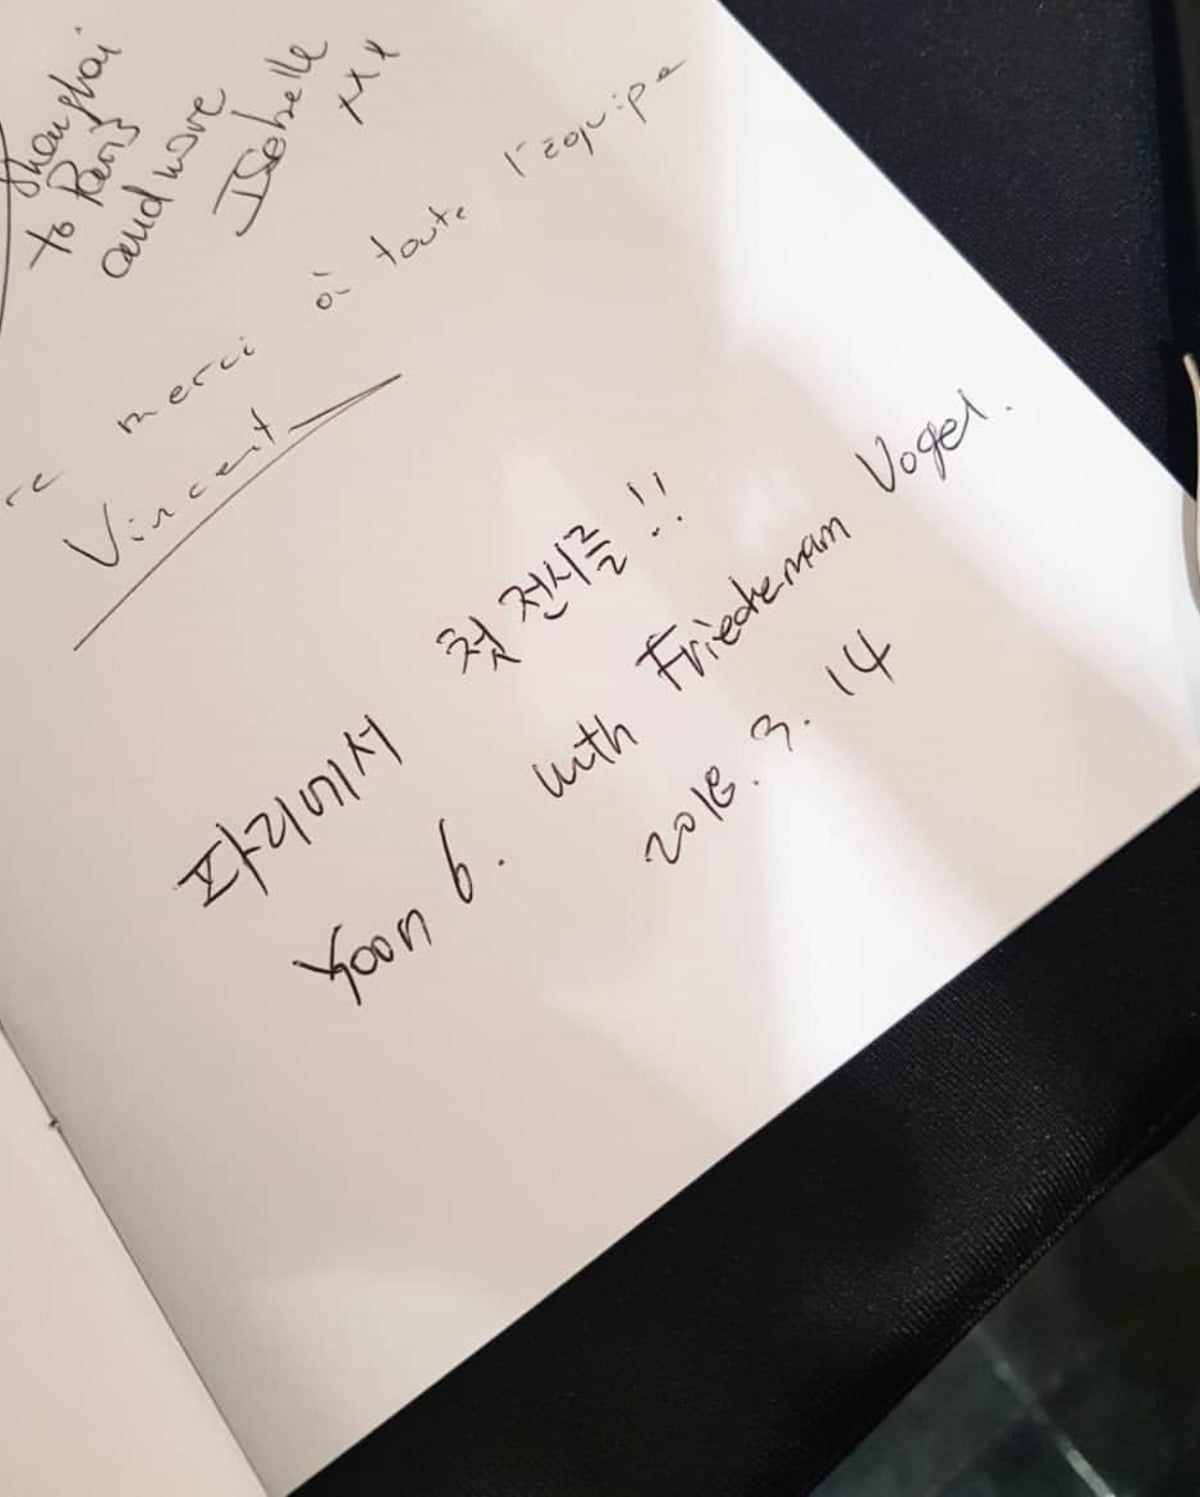 Shanghai
to Paris
and more
Isabelle
xxx
merci à toute l'équipe
Vincent
파리에서 첫 전시를!!
Yoon 6. with Friedemann Vogel.
2018. 3. 14